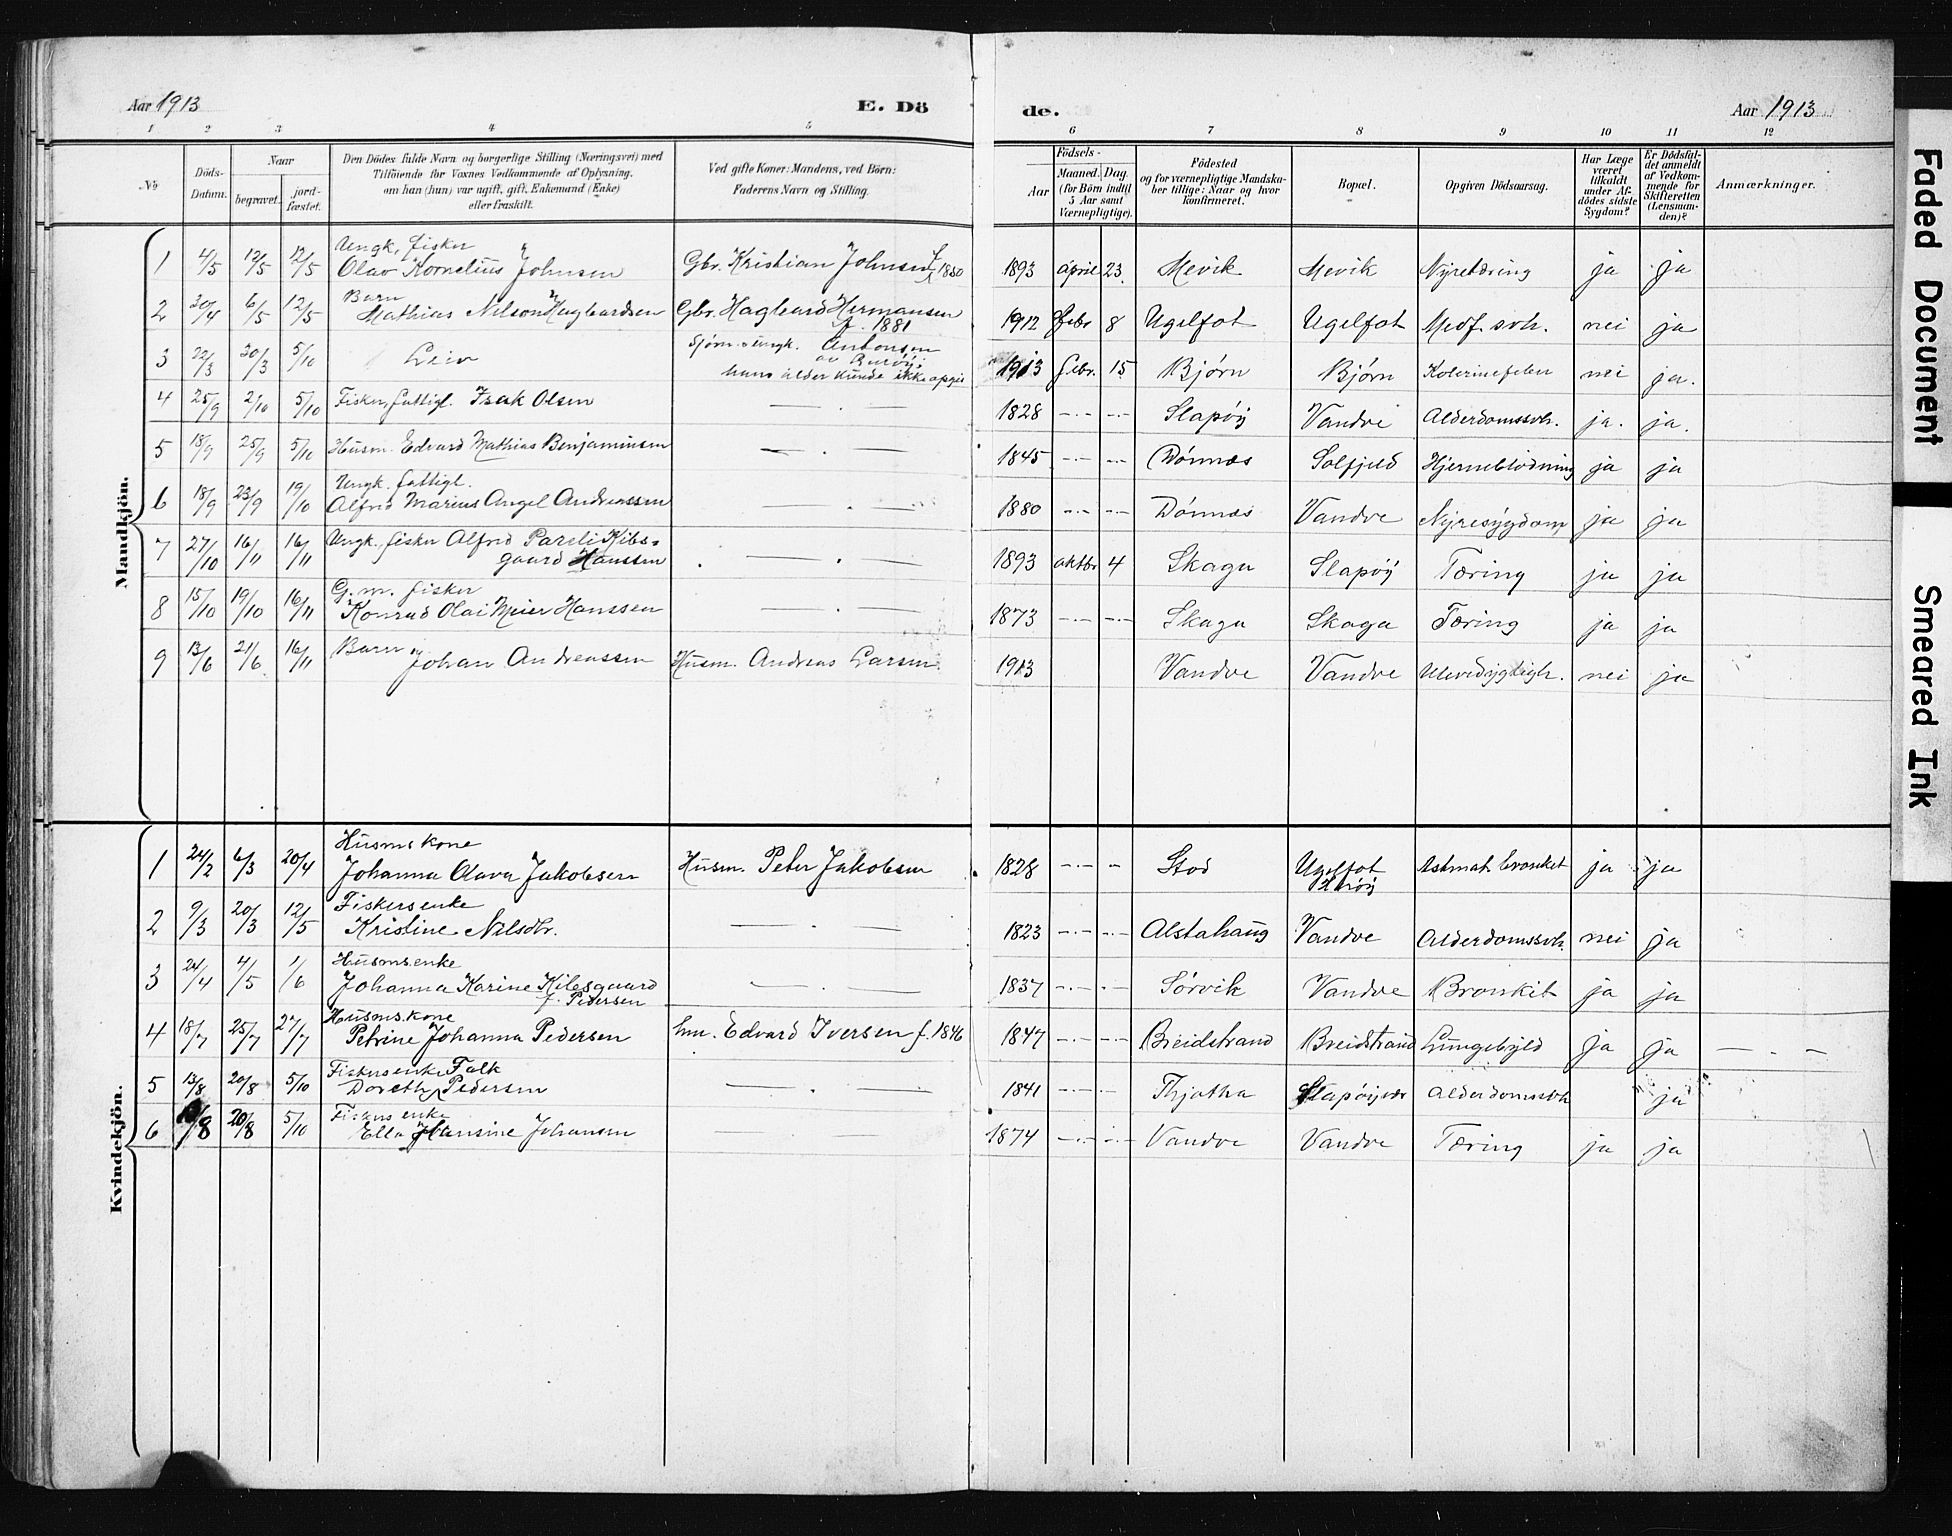 Aar 1913
E. Dö
de.
Aar 1913
1 2 3 4 5 6 7 8 9 10 11 12
No
Döds-
Datum.
Naar
begravet.
jord-
fæstet.
Den Dödes fulde Navn og borgerlige Stilling (Næringsvei) med
Tilföiende for Voxnes Vedkommende af Oplysning,
om han (hun) var ugift, gift, Enkemand (Enke)
eller fraskilt.
Ved gifte Koner: Mandens, ved Börn:
Faderens Navn og Stilling.
Födsels-
Aar
Maaned. Dag.
(for Börn indtil
5 Aar samt
Værnepligtige).
Födested
og for værnepligtige Mandska-
ber tillige: Naar og hvor
konfirmeret.
Bopæl.
Opgiven Dödsaarsag.
Har Læge
været
tilkaldt
under Af-
dödes sidste
Sygdom?
Er Dödsfal-
det anmeldt
af Vedkom-
mende for
Skifteretten
(Lensman-
den)?
Anmærkninger.
Mandkjön.
Ungk. fisker
1 4/5 12/5 12/5 Olav Kornelius Johnsen Gbr. Kristian Johnsen f. 1850 1893 april 23 Mevik Mevik Nyretæring ja ja
Barn
2 30/4 6/5 12/5 Mathias Nilson Hagbardsen Gbr. Hagbard Hermansen 1912 Febr 8 Ugelfot Ugelfot Medf. svh. nei ja
f. 1881
3 22/3 30/3 5/10 Leiv Sjøm. ungk. Antonsen 1913 febr. 15 Bjørn Bjørn nei ja.
av Burøy;
hans alder kunde ikke opgis
4 25/9 2/10 5/10 Fisker, fattigl. Isak Olsen — . — 1828 — . — — . — Slapøy Vandve Alderdomssvh. ja. ja.
5 18/9 25/9 5/10 Husm. Edvard Mathias Benjaminsen — . — 1845 — . — — . — Dønnæs Solfjeld Hjerneblødning ja ja
Ungk. fattigl.
6 18/9 23/9 19/10 Alfred Marius Angel Andreassen — . — 1880 — . — — . — Dönnæs Vandve Nyresygdom ja ja
7 27/10 16/11 16/11 Ungk. fisker Alfred Pareli Kibs-
gaard Hanssen — . — 1893 oktbr 4 Skaga Slapøy Tæring ja ja
G. m. fisker
8 15/10 19/10 16/11 Konrad Olai Meier Hanssen — . — 1873 — . — — . — Skaga Skaga Tæring ja ja
Barn
9 13/6 21/6 16/11 Johan Andreassen Husm. Andreas Larsen 1913 Vandve Vandve Ulevedygtigh. nei ja
Kvindekjön.
Husms kone
1 24/2 6/3 20/4 Johanna Olava Jakobsen Husm. Peter Jakobsen 1828 — . — — Stod Ugelfot Astmat. bronkit ja ja
Fiskersenke
2 9/3 20/3 12/5 Kristine Nilsdtr. — . — 1823 — . — — . — Alstahaug Vandve Alderdomssvh. nei ja
Husmsenke
3 24/4 4/5 1/6 Johanna Karine Kibsgaard — . — 1837 — . — — . — Sørvik Vandve Bronkit ja ja
f. Pedersen
Husms. kone
4 18/7 25/7 27/7 Petrine Johanna Pedersen hm. Edvard Iversen f. 1846 1847 — . — — . — Breidstrand Breidstrand Lungebyld ja ja — . —
Fiskersenke Falk
5 13/8 20/8 5/10 Doreth. Pedersen — . — 1841 — . — — . — Thjøtta Slapøyvær Alderdomssvh ja
Fiskers enke
6 20/8 5/10 Ella Hansine Johansen — . — 1874 — . — — . — Vandve Vandve Tæring ja ja
Faded Document
Smeared Ink